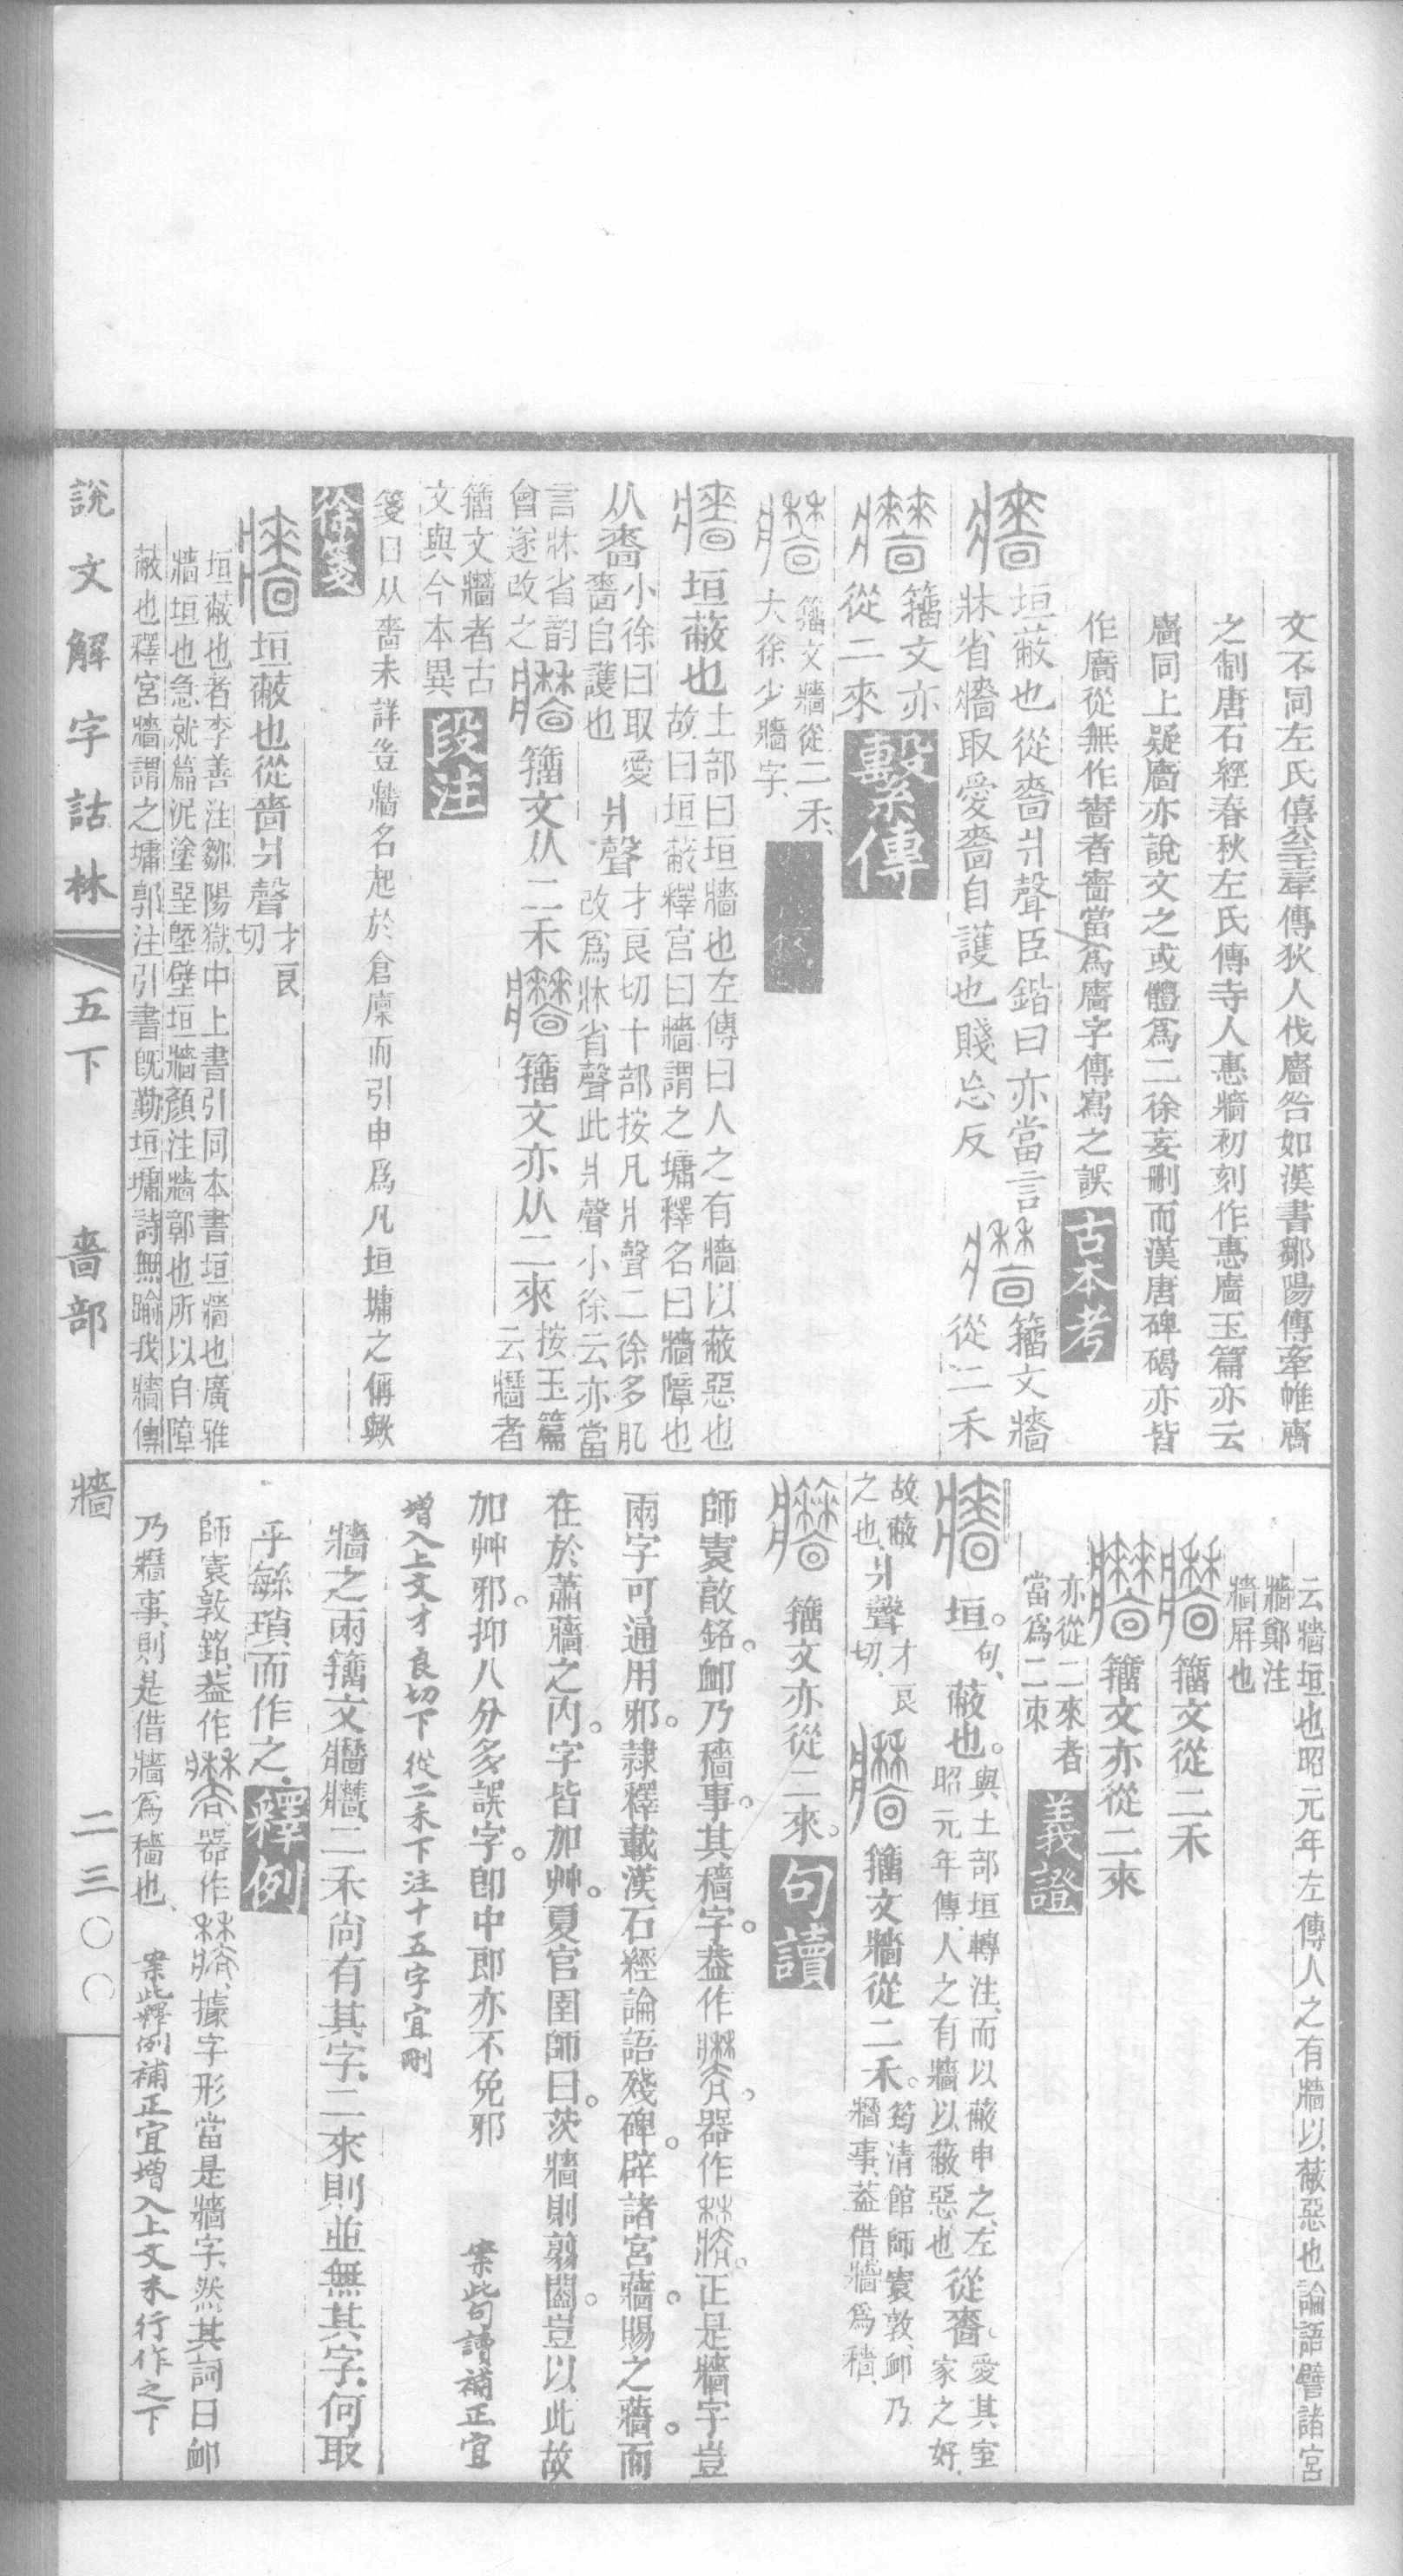 文不同左氏僖公二十三年傳狄人伐廧咎如漢書鄒陽傳牽帷廧
之制唐石經春秋左氏傳寺人惠牆初刻作惠廧玉篇亦云
廧同上疑廧亦說文之或體爲二徐妄刪而漢唐碑碣亦皆
作廧從無作嗇者嗇當爲廧字傳寫之誤 古本考
牆 垣蔽也從嗇爿聲臣鍇曰亦當言
牀省牆取愛嗇自護也賤忘反 籒文牆
從二禾
籒文亦
從二來 繫傳
籒文牆從二禾
大徐少牆字
牆 垣蔽也 土部曰垣牆也左傳曰人之有牆以蔽惡也
故曰垣蔽釋宮曰牆謂之墉釋名曰牆障也
从嗇 小徐曰取愛
嗇自護也
爿聲 才良切十部按凡爿聲二徐多肊
改爲牀省聲此爿聲小徐云亦當
言牀省韵
會遂改之
籒文从二禾 籒文亦从二來 按玉篇
云牆者
籒文牆者古
文與今本異 段注
箋曰从嗇未詳豈牆名起於倉廩而引申爲凡垣墉之偁歟
徐箋
牆 垣蔽也從嗇爿聲 才良
切
垣蔽也者李善注鄒陽獄中上書引同本書垣牆也廣雅
牆垣也急就篇泥塗堊墍壁垣牆顏注牆鄣也所以自障
蔽也釋宮牆謂之墉郭注引書旣勤垣墉詩無踰我牆傳
說文解字詁林 五下 嗇部 牆 二三〇〇
云牆垣也昭元年左傳人之有牆以蔽惡也論語譬諸宮
牆鄭注
牆屛也
籒文從二禾
籒文亦從二來
亦從二來者
當爲二朿 義證
牆 垣。句、蔽也。與土部垣轉注、而以蔽申之、左
昭元年傳、人之有牆以蔽惡也
從嗇、愛其室
家之好、
故蔽
之也、
爿聲 才良
切、
籒文牆從二禾。筠清館師寰敦、卹乃
牆事、蓋借牆爲穡、
籒文亦從二來。 句讀
師寰敦銘。卹乃穡事。其穡字。蓋作 器作 正是牆字豈
兩字可通用邪。隷釋載漢石經論語殘碑。辟諸宮蘠。賜之蘠。而
在於蕭牆之內。字皆加艸。夏官圉師曰。茨牆則翦闔。豈以此故
加艸邪。抑八分多誤字。卽中郎亦不免邪 案此句讀補正宜
增入上文才良切下從二禾下注十五字宜刪
牆之兩籒文 二禾尚有其字、二來則並無其字、何取
乎緐瑣而作之、 釋例
師寰敦銘、蓋作 器作 據字形當是牆字、然其詞曰卹
乃牆事、則是借牆爲穡也、 案此釋例補正宜增入上文末行作之下